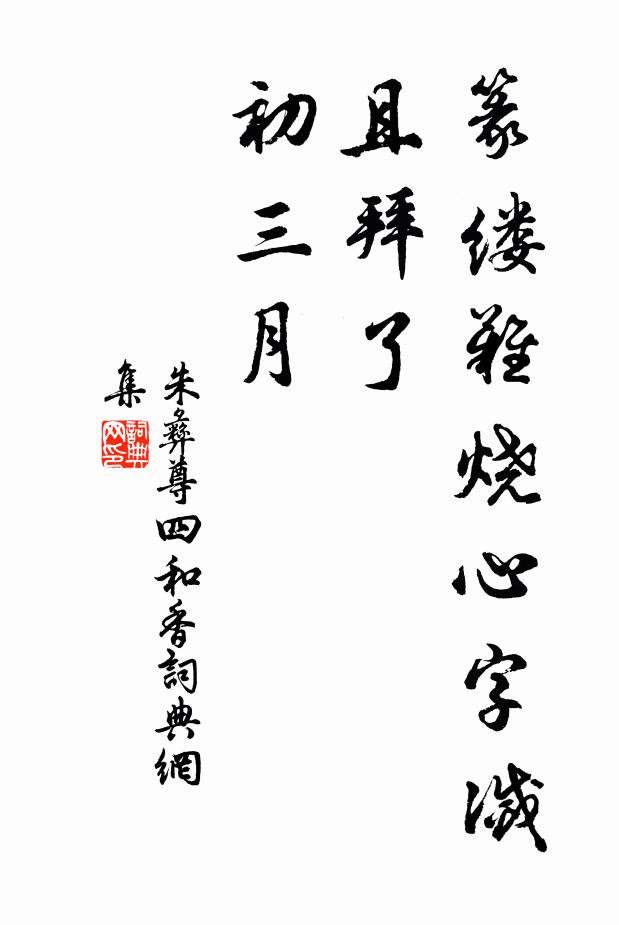 篆缕难烧心字滅
且拜了
初三月
朱彝尊四和香詞典網
集
詞典网印